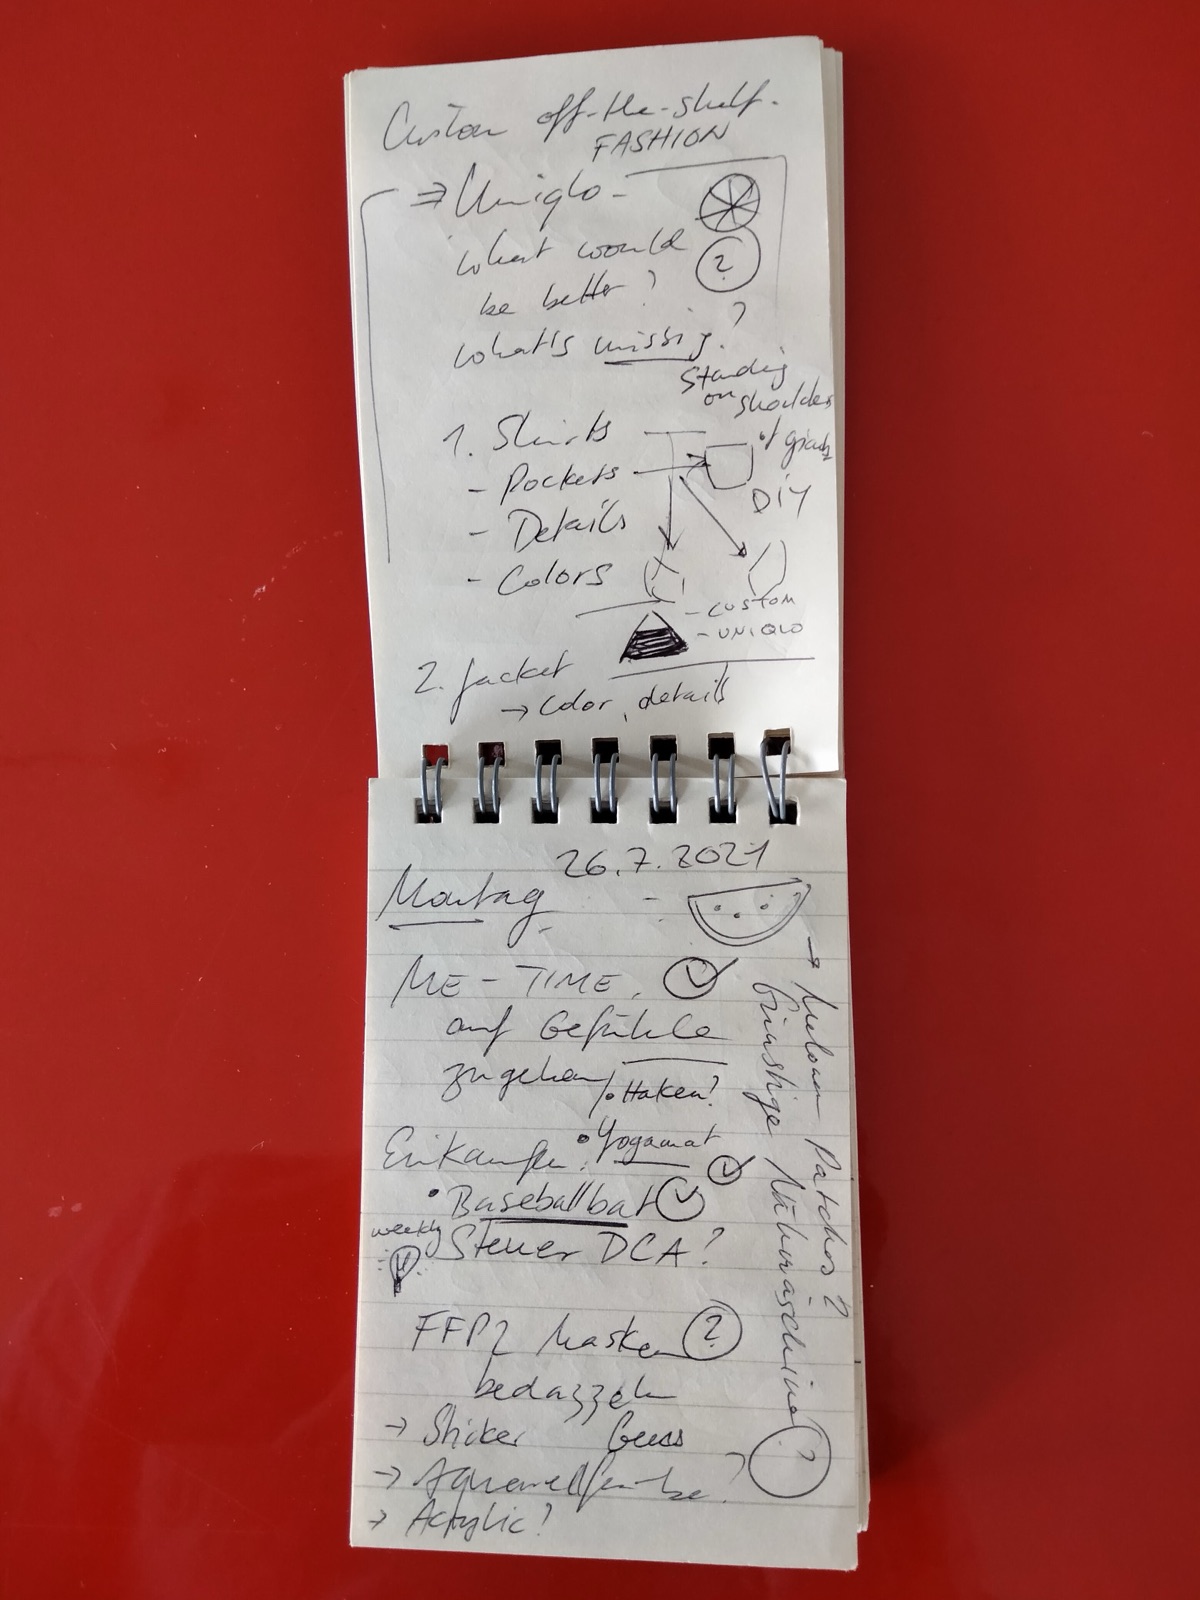 Custom off-the-shelf.
FASHION
⇒ Uniqlo -
What would
be better?
?
what's missing?
Standing
on shoulders
of giants
DIY
1. Shirts
- Pockets
- Details
- Colors
- CUSTOM
- UNIQLO
2. Jacket
→ Color, details
26.7.2021
Montag
ME-TIME.
auf Gefühle
zugehen
• Haken?
Einkaufen:
• Yogamat
• Baseballbat
weekly
Steuer DCA?
FFP2 Masken ?
bedazzeln
→ Sticker
→ Aquarellfarbe?
→ Acrylic?
→ Melonen Patches?
Günstige Nähmaschine?